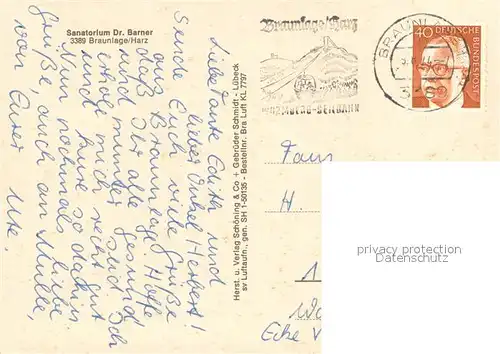 Sanatorium Dr. Barner
3389 Braunlage/Harz
Liebe Tante Edith und
lieber Onkel Herbert!
Sende Euch viele Grüße
aus Braunlage. Hoffe
daß Ihr alle gesund
und munter seid. Ich
erhole mich recht gut
hier so dahin.
Nun nochmals liebe
Grüße auch an Mutter
von Eurer
Ute.
Herst. u. Verlag Schöning & Co + Gebrüder Schmidt - Lübeck
sv Luftaufn., gen. SH 1-50135 - Bestellnr. Bra Luft KL 7797
Braunlage/Harz
WURMBERG-SEILBAHN
BRAUNLA
40
DEUTSCHE
BUNDESPOST
Fam
H.
1
Ecke
privacy protection
watermark